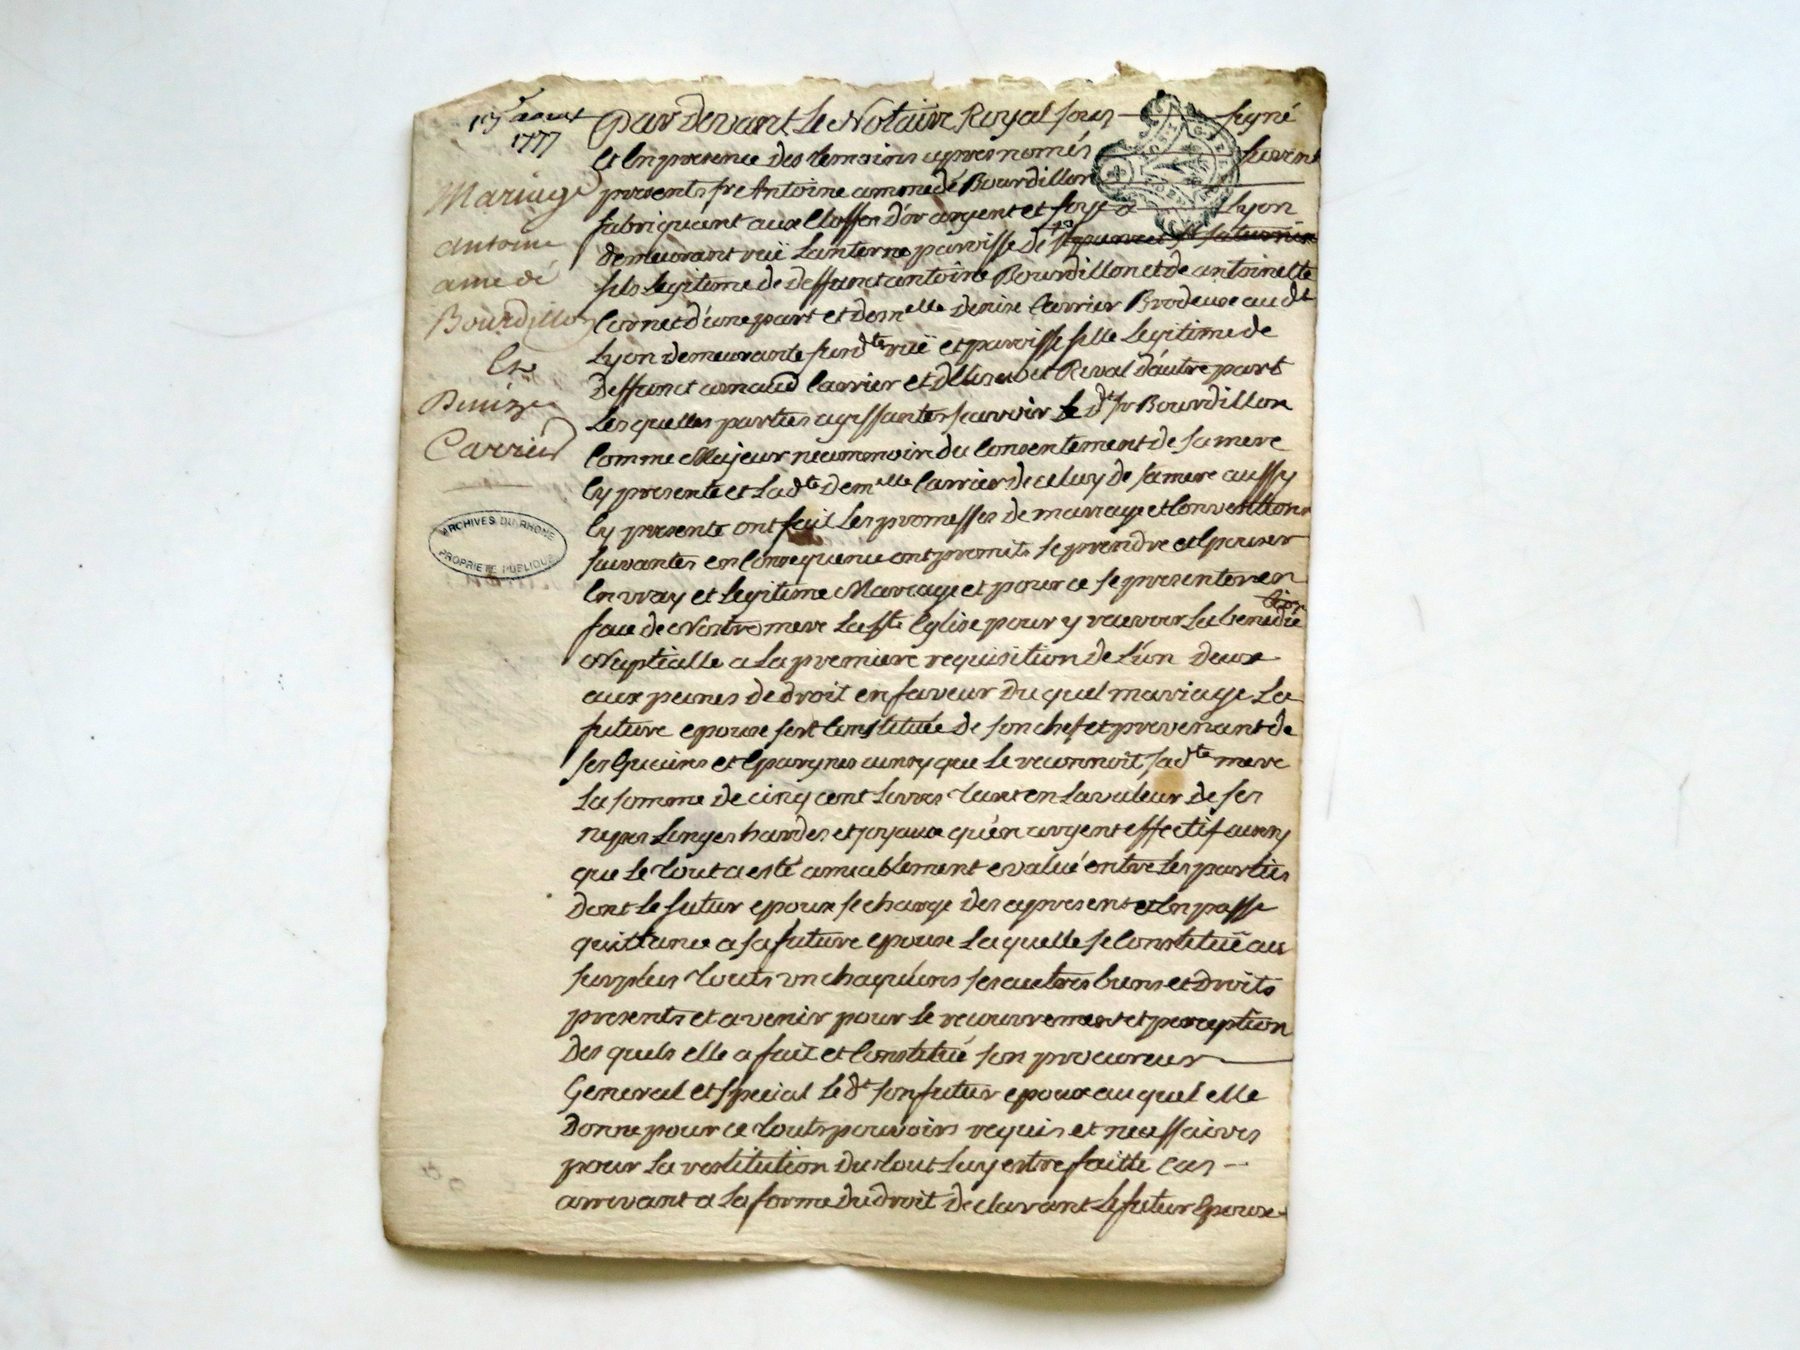 aoust
1777
Mariage
antoine
amedé
Bourdillon
Et
Denize
Carrier
ARCHIVES DU RHONE
PROPRIETE PUBLIQUE
par devant Le Notaire Royal sous signé
et En presence des temoins apres només furent
presents sr Antoine amedé Bourdillon
fabriquant aux Etoffes d'or argent et soye a Lyon
demeurant ruë Lanterne paroisse de st et st saturnin
fils Legitime de deffunt antoine Bourdillon et de antoinette
Cornet d'une part et demelle denize Carrier Brodeuse au dt
Lyon demeurante susdte ruë et paroisse fille Legitime de
deffunct arnaud Carrier et d'Elizabet Reval d'autre part
Lesquelles parties agissantes scavoir Le dt sr Bourdillon
Comme Majeur neammoin du Consentement de sa mere
Cy presente et Ladte demelle Carrier de celuy de sa mere aussy
Cy presente ont fait Les promesses de mariage et Conventions
suivantes en Consequence ont promits se prendre et Epouser
En vray et Legitime Mariage et pour ce se presenter en
face de Nostre mere La ste Eglise pour y recevoir La benediction
Nuptialle a La premiere requisition de L'un deux
aux peines de droit en faveur du quel mariage La
future epouse sest Constituée de son chef et provenant de
ses Gueins et Epargnes ainsy que Le reconnoit sadte mere
La somme de cinq cent Livres tant en La valeur de ses
nipes Linges hardes et joyaux qu'en argent effectif ainsy
que Le tout a esté amiablement evalué entre Les parties
dont Le futur epoux se charge des apresent et En passe
quittance a sa future epouse Laquelle se Constituë au
surplus touts un chaqu'uns ses autres biens et droits
presents et avenir pour Le recouvrement et perception
des quels elle a fait et Constitué son procureur
General et special Le dt son futur epoux au quel elle
donne pour ce touts pouvoirs requis et necessaires
pour La restitution du tout Luy estre faitte Cas
arrivant a La forme du droit declarant Le futur Epoux